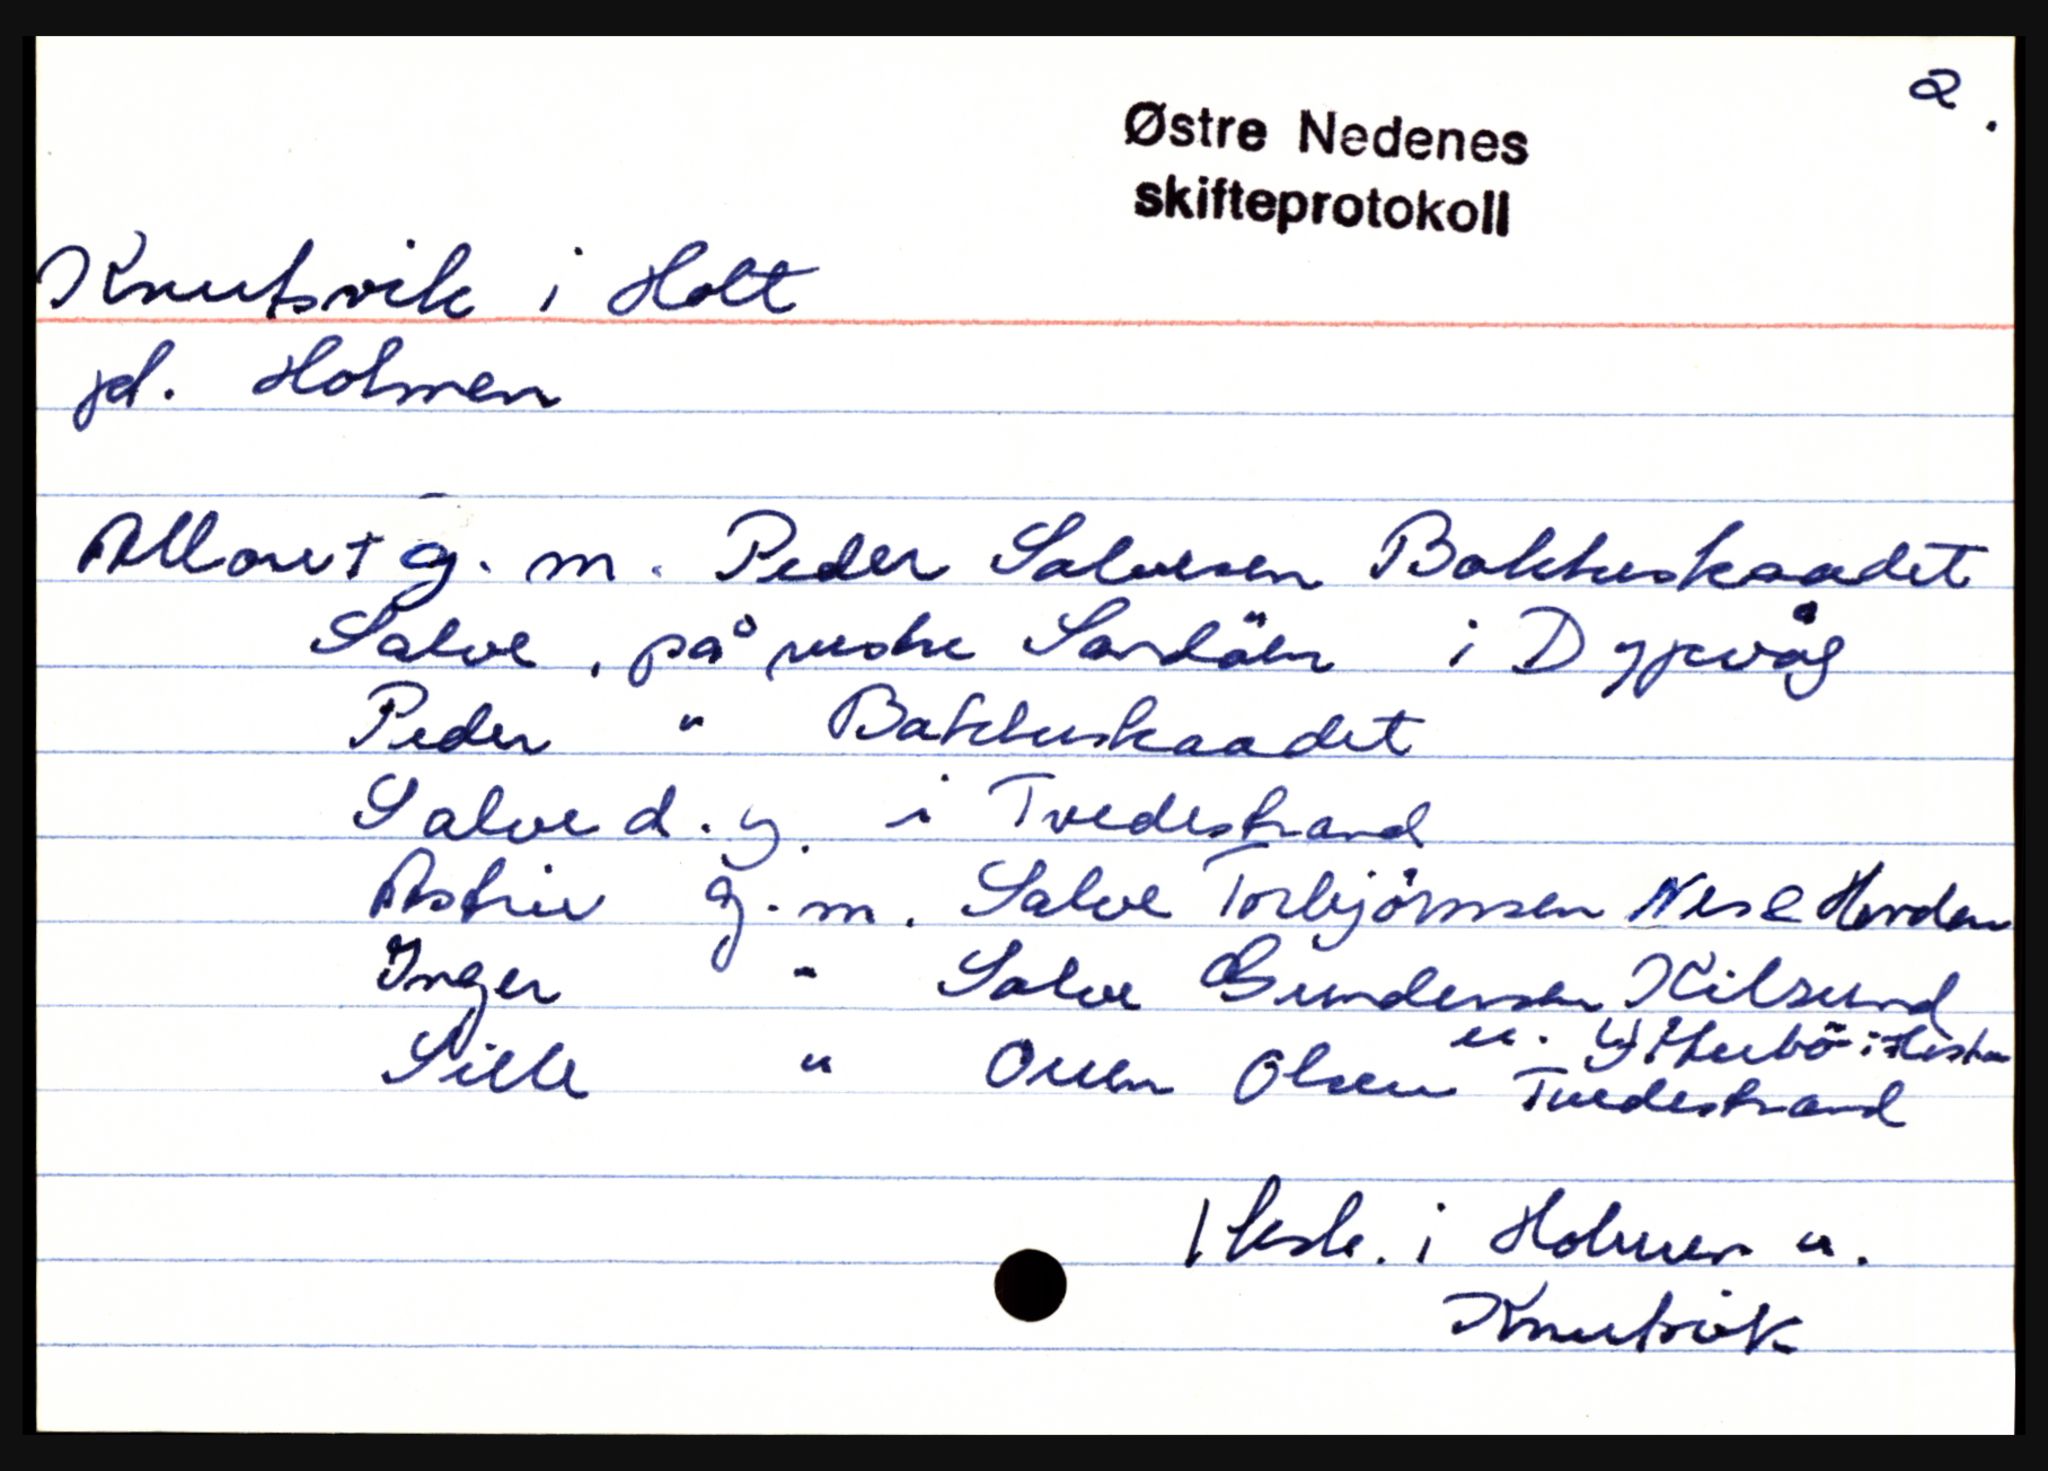 2.
Østre Nedenes
skifteprotokoll
Knutsvik i Holt
pl. Holmen
g. m. Peder Salvesen Bakkeskaadet
Salve, på vestre Sandöen i Dypvåg
Peder " Bakkeskaadet
Salve d. y. i Tvedestrand
Astrid g. m. Salve Torbjörnsen Nes e Herdan
Inger " Salve Gundersen Kilsund
Sille " Ouen Olsen u. Ytterbö i
Tvedestrand
i Holmen u.
Knutsvik